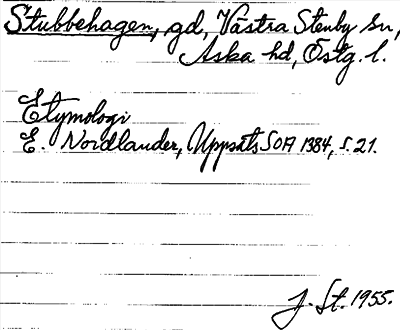 Stubbehagen, gd, Västra Stenby sn,
Aska hd, Östg. l.
Etymologi
E. Nordlander, Uppsats SOA 1384, s. 21.
J. St. 1955.